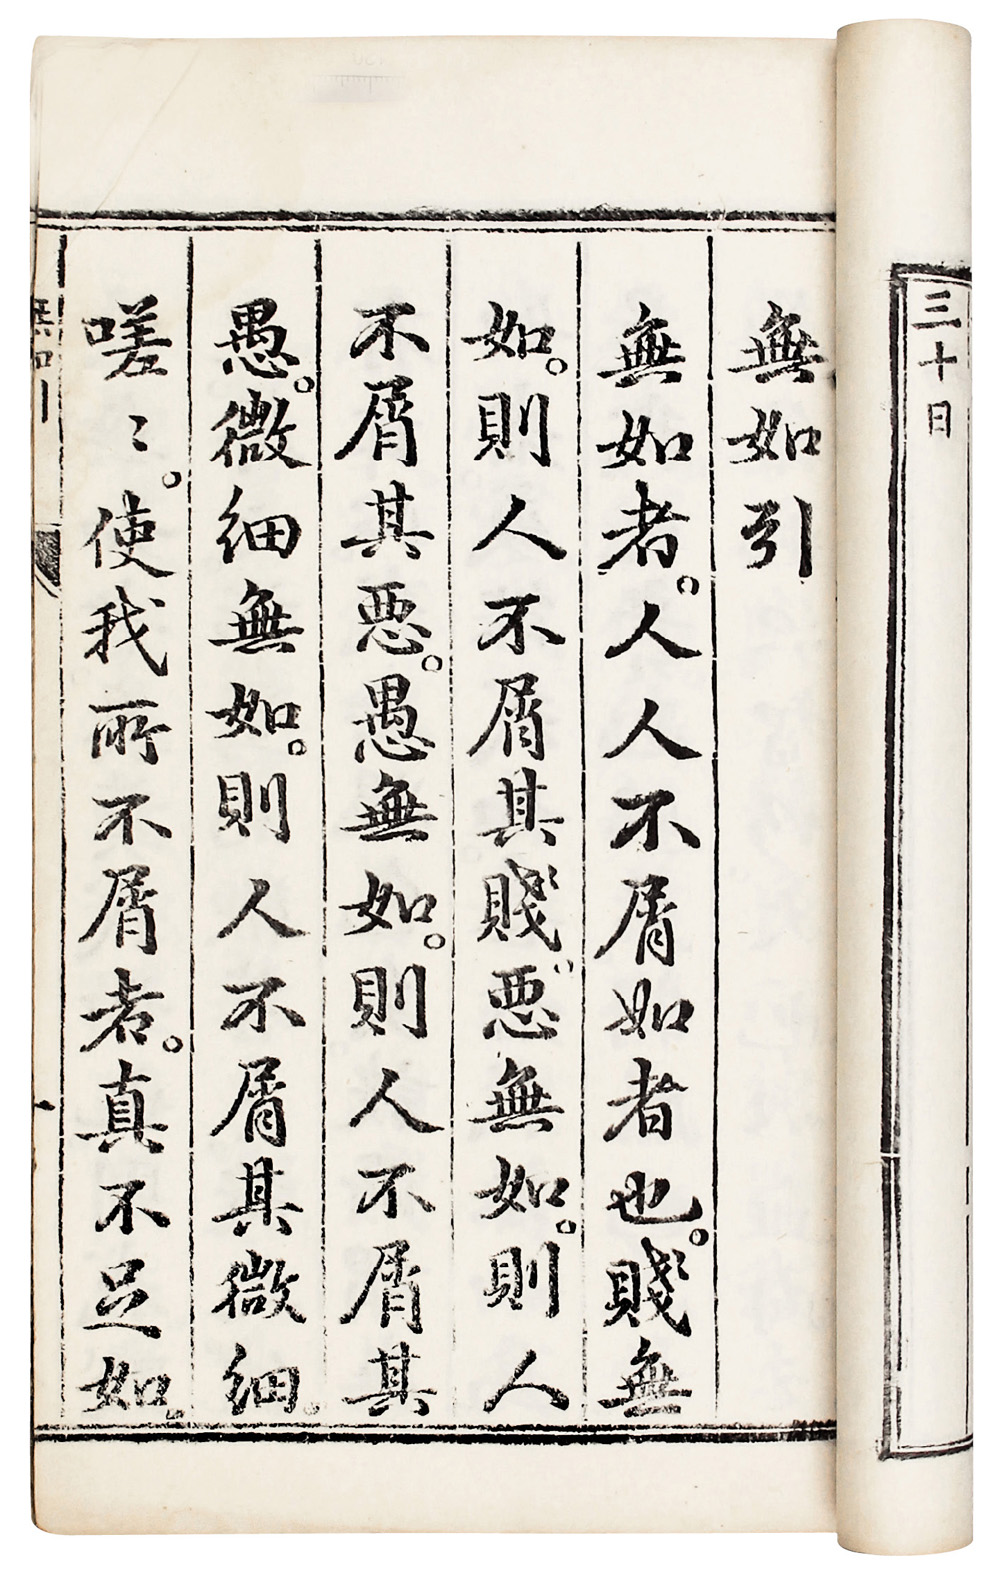 三十日
無如引
無如者。人人不屑如者也。賤無
如。則人不屑其賤。惡無如。則人
不屑其惡。愚無如。則人不屑其
愚。微細無如。則人不屑其微細。
嗟〻。使我所不屑者。真不足如。
無如引